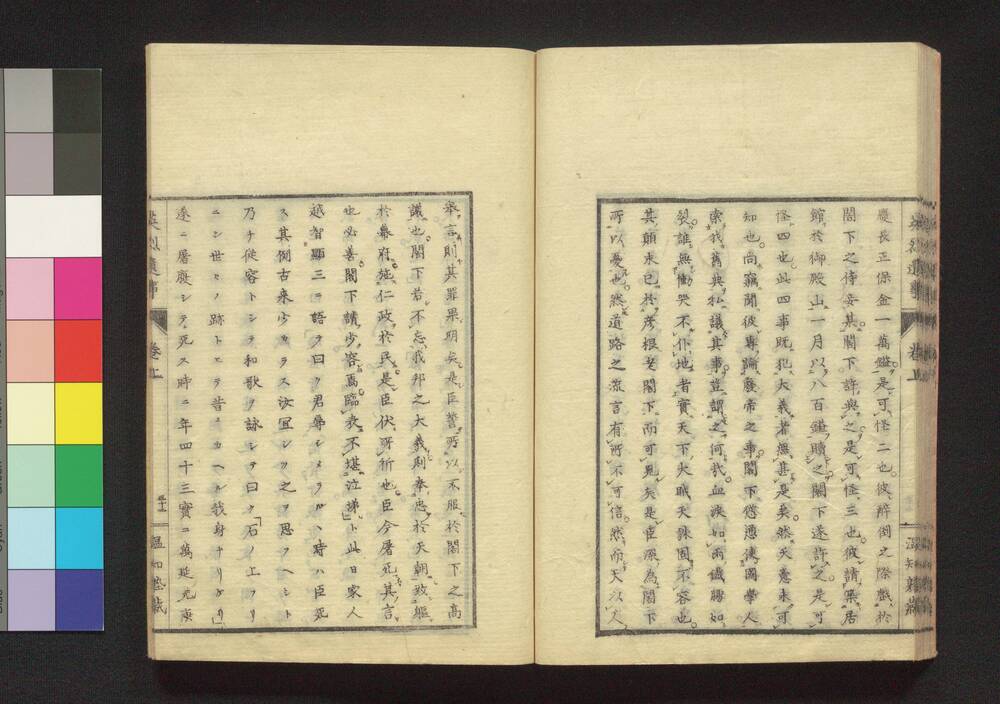 慶長正保金一萬鎰是可怪二也彼醉倒之際戲於
閤下之侍妾某閤下許與之是可怪三也彼請築居
館於御殿山一月以八百鎰贖之閤下遂許之是可
怪四也此四事既犯大義者無甚是矣然天意未可
知也尚竊聞彼專論廢帝之事閤下慫慂使國學人
索於舊典私議其事豈謂之何哉血淚如雨儀腸如
裂誰無慟哭不仆地者實天下火眠天誅固不容也
其顛末已於彥根老閤下而可見矣是臣深為閤下
所以憂也然道路之流言有所不可信然而天以人
舉言則其罪果明矣是臣誓所以不服於閤下之高
議也閤下若不忘我邦之大義則奉忠於天朝致軀
於幕府施仁政於民是臣伏所祈也臣今屠死其言
也必善閤下請少容焉臨表不堪泣涕ト此日家人
越智顯三ニ語ヲ曰ク君辱シメラルヽ時ハ臣死
ス其例古来少カラス汝冝シク之ヲ思フヘシト
乃チ從容トシテ和歌ヲ詠シテ曰ク「石ノ上フリ
ニシ世ヒノ跡トヒテ昔ニカヘル我身ナリケリ」
遂ニ屠腹シテ死ス時ニ年四十三實ニ萬延元庚
卷上
五十一
溫知塾藏